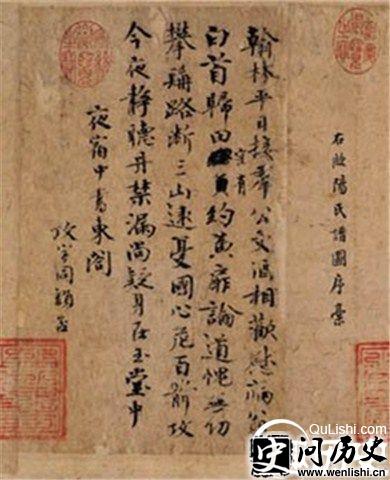 右歐陽氏譜圖序藁
翰林平日接羣公文酒相歡慰病
白首歸田空有約黃扉論道愧無功
攀髯路斷三山遠憂國心危百箭攻
今夜靜聽丹禁漏尚疑身在玉堂中
夜宿中書東閣
QuLishi.com
问历史
www.wenlishi.cn